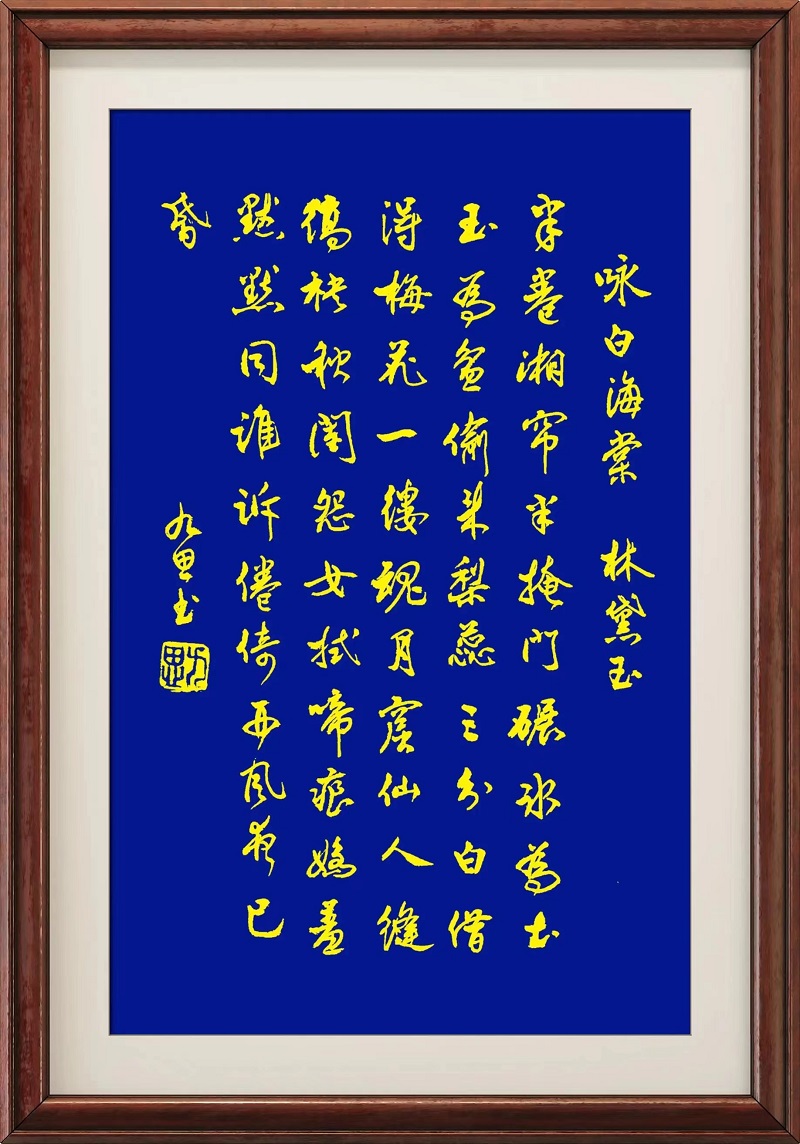 咏白海棠 林黛玉
半卷湘帘半掩門碾冰為土
玉為盆偷来梨蕊三分白借
得梅花一缕魂月窟仙人缝
缟袂秋闺怨女拭啼痕娇羞
默默同谁诉倦倚西风夜已
昏
九思书
九思